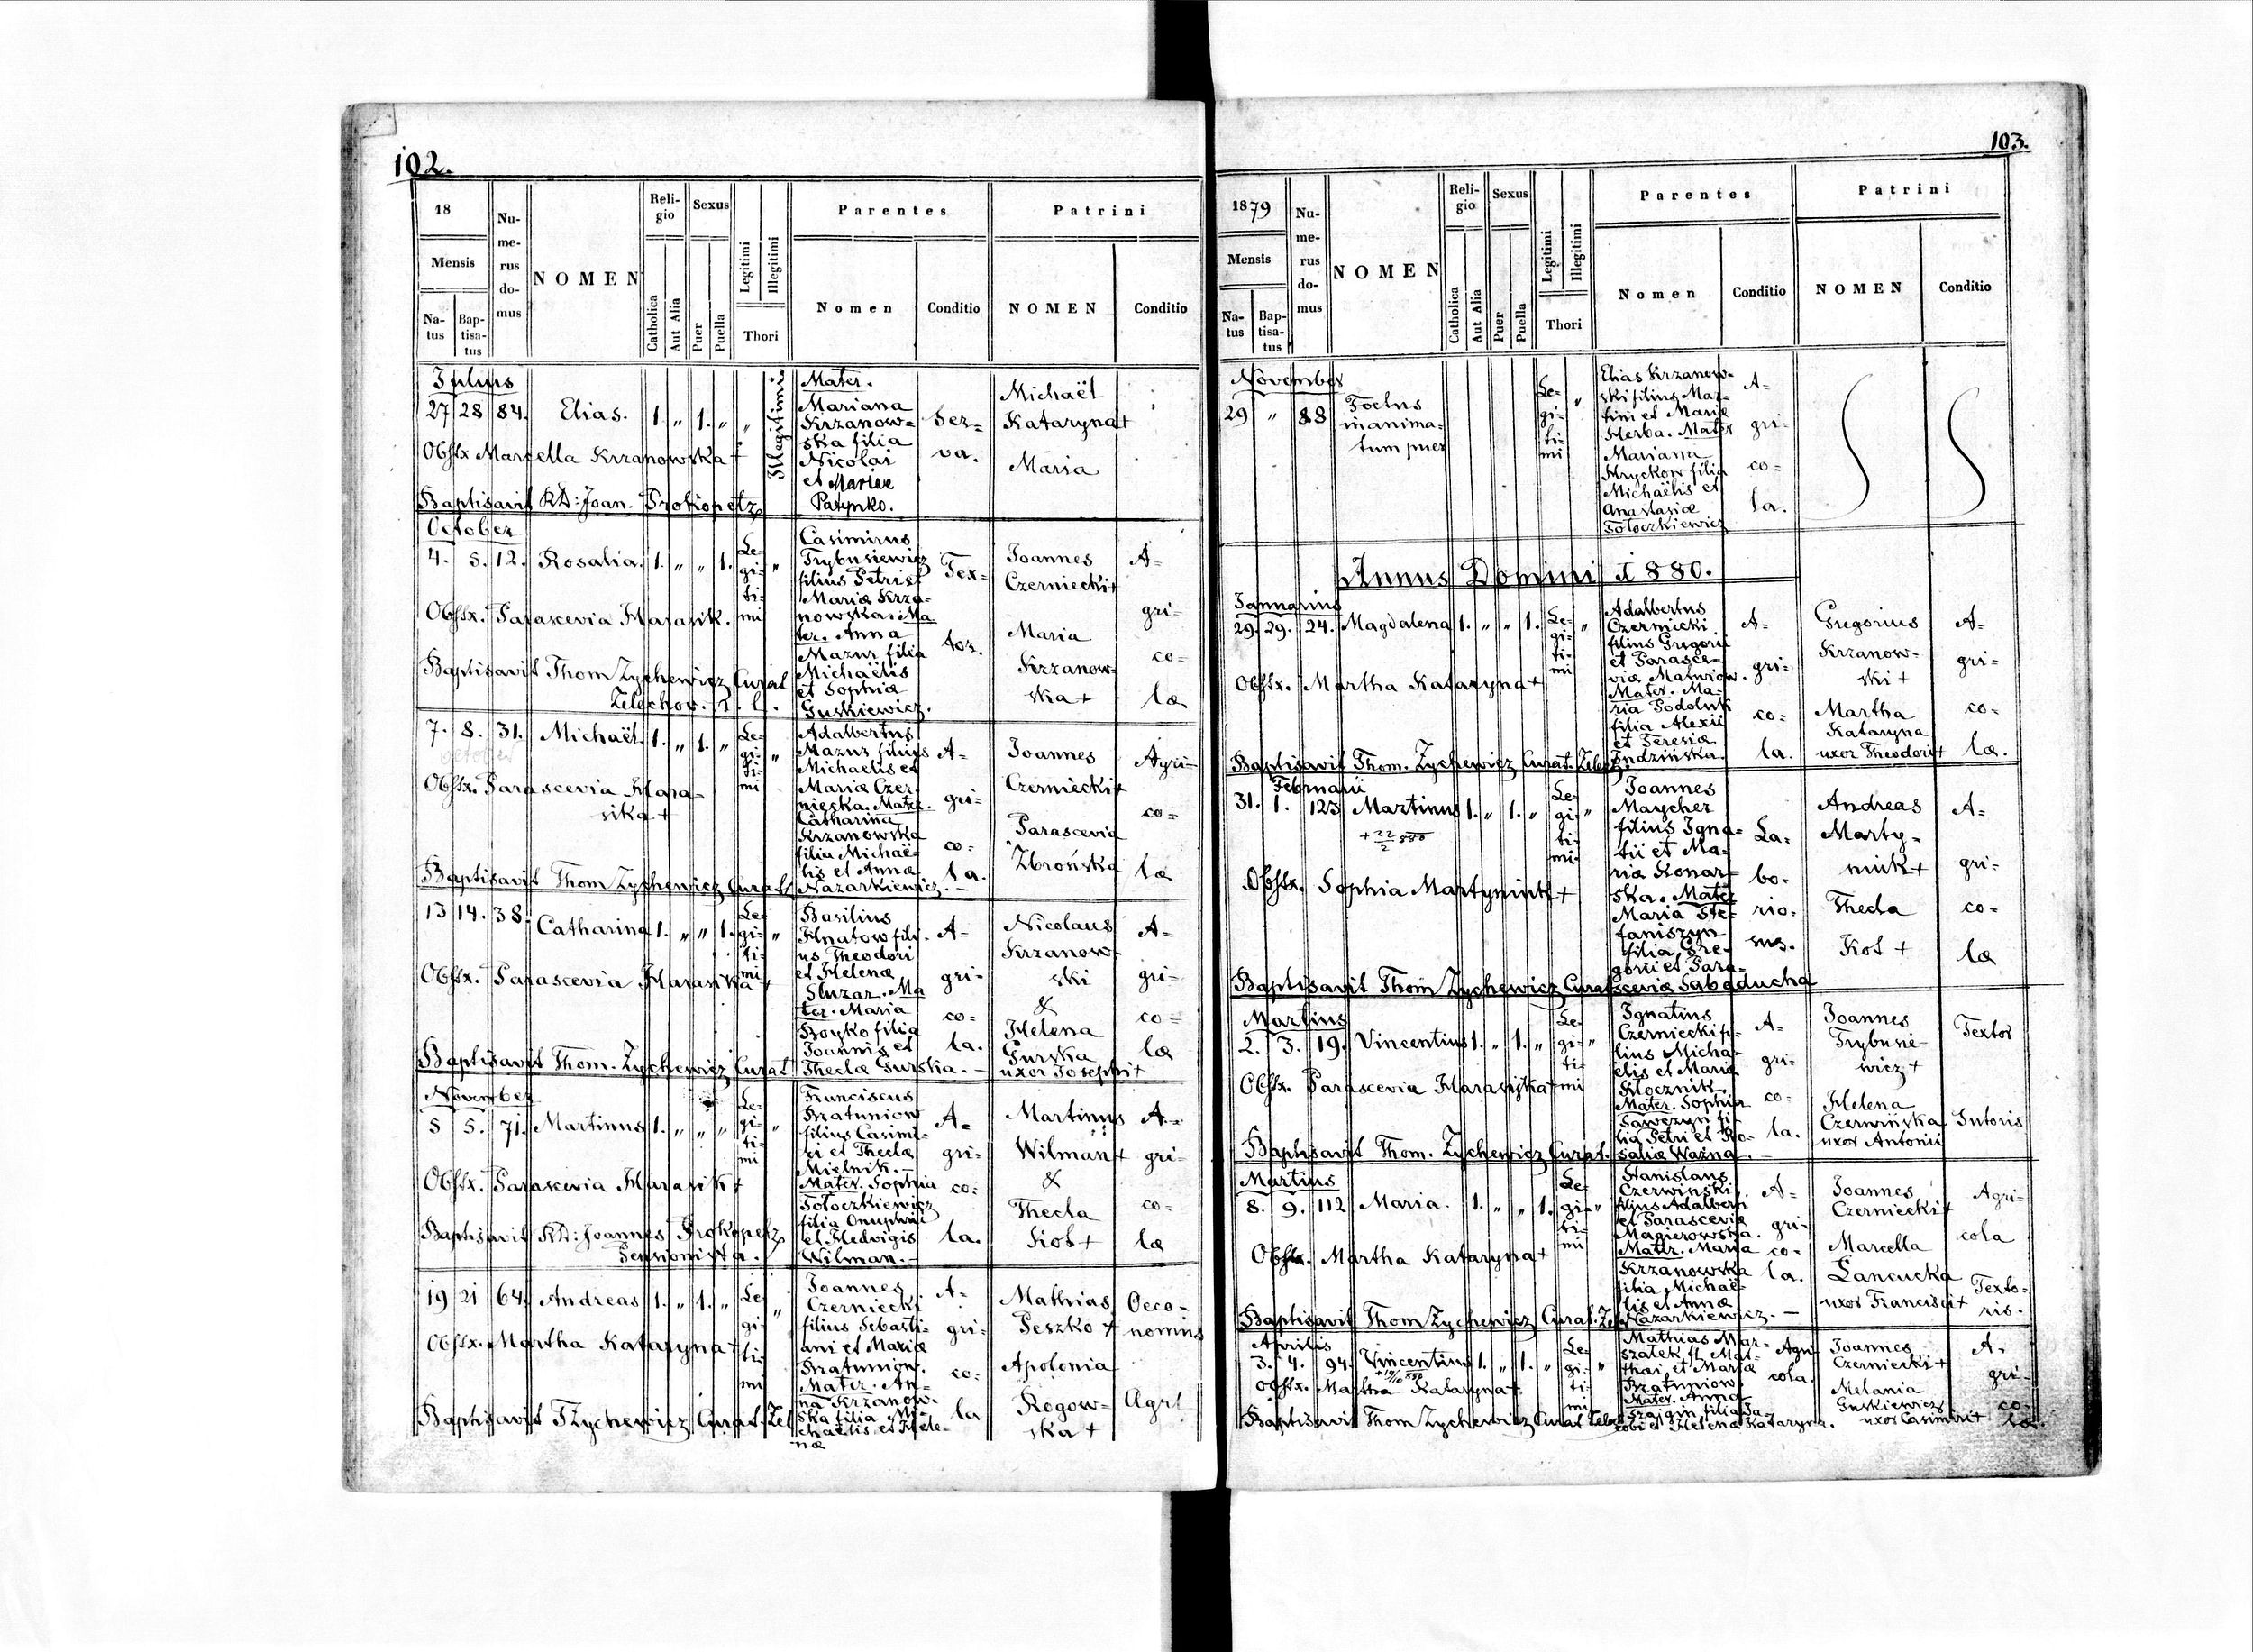 102.
18
Mensis
Na-
tus
Bap-
tisa-
tus
Nu-
me-
rus
do-
mus
NOMEN
Reli-
gio
Catholica
Aut Alia
Sexus
Puer
Puella
Legitimi
Illegitimi
Thori
Parentes
Nomen
Conditio
Patrini
NOMEN
Conditio
Julius
27 28 84. Elias. 1. „ 1. „ „ Illegitimi
Mater.
Mariana
Krzanow=
ska filia
Nicolai
et Mariae
Patynko.
Ser=
va.
Michaël
Kataryna+
Maria
Obstx Marcella Krzanowska+
Baptisavit RD: Joan. Prokopetz
October
4. 5. 12. Rosalia. 1. „ „ 1. Le-
gi=
ti=
mi „
Casimirus
Trybusiewicz
filius Petri et
Mariæ Krza-
nowska. Ma
ter. Anna
Mazur filia
Michaëlis
et Sophiæ
Guskiewicz.
Tex=
tor.
Joannes
Czerniecki+
Maria
Krzanow-
ska+
A=
gri=
co=
læ
Obstx. Parascevia Harasik.
Baptisavit Thom Zychewicz Curat
Zelechov. r. l.
7. 8. 31. Michaël. 1. „ 1. „ Le-
gi=
ti=
mi „
october
Adalbertus
Mazur filius
Michaelis et
Mariæ Czer-
niecka. Mater.
Catharina
Krzanowska
filia Michaë-
lis et Annæ
Nazarkiewicz.—
A=
gri=
co=
la.
Joannes
Czerniecki+
Parascevia
Zbrońska
Agri=
co=
læ
Obstx. Parascevia Hara=
sika+
Baptisavit Thom Zychewicz Curat
13 14. 38. Catharina 1. „ „ 1. Le-
gi=
ti=
mi „
Basilius
Hnatow fili-
us Theodori
et Helenæ
Sluzar. Ma
ter. Maria
Boyko filia
Joannis et
Theclæ Gurska.—
A=
gri=
co=
la.
Nicolaus
Krzanow-
ski
&
Helena
Gurska
uxor Josephi+
A=
gri=
co=
læ
Obstx. Parascevia Harasika+
Baptisavit Thom. Zychewicz Curat
November
5 5. 71. Martinus 1. „ „ „ Le-
gi=
ti=
mi „
Franciscus
Bratuniow
filius Casimi-
ri et Theclæ
Mielnik.—
Mater. Sophia
Tołoczkiewicz
filia Onuphrii
et Hedvigis
Wilman.—
A=
gri=
co=
la.
Martinus
Wilman+
&
Thecla
Kot+
A=
gri=
co=
læ
Obstx. Parascevia Harasik+
Baptisavit RD: Joannes Prokopetz
Pensionista.
19 21 64. Andreas 1. „ 1. „ Le
gi=
ti=
mi „
Joannes
Czerniecki
filius Sebasti-
ani et Mariæ
Bratuniow.
Mater. An=
na Krzanow-
ska filia Mi-
chaëlis et Hele-
næ
A=
gri=
co=
la
Mathias
Peszko +
Apolonia
Rogow=
ska+
Oeco-
nomus
Agri
Obstx. Martha Kataryna+
Baptisavit TZychewicz Curat. Zel
103.
1879
Mensis
Na-
tus
Bap-
tisa-
tus
Nu-
me-
rus
do-
mus
NOMEN
Reli-
gio
Catholica
Aut Alia
Sexus
Puer
Puella
Legitimi
Illegitimi
Thori
Parentes
Nomen
Conditio
Patrini
NOMEN
Conditio
November
29 „ 88 Foetus
inanima=
tum puer
Le-
gi=
ti=
mi „
Elias Krzanow-
ski filius Mar-
tini et Mariæ
Herba. Mater
Mariana
Hryckow filia
Michaëlis et
Anastasiæ
Tołoczkiewicz
A=
gri=
co=
la.
Annus Domini 1880.
Januarius
29. 29. 24. Magdalena 1. „ „ 1. Le-
gi=
ti=
mi „
Adalbertus
Czernicki
filius Gregorii
et Parasce=
viæ Matwiow.
Mater. Ma-
ria Podoluk
filia Alexii
et Teresiæ
Indzińska.
A=
gri=
co=
la.
Gregorius
Krzanow-
ski +
Martha
Kataryna
uxor Theodori+
A=
gri=
co=
læ.
Obstx. Martha Kataryna+
Baptisavit Thom. Zychewicz Curat. Zelech
Februarii
31. 1. 123 Martinus 1. „ 1. „ Le-
gi=
ti=
mi „
+ 22/2 880
Joannes
Maycher
filius Igna=
tii et Ma-
riæ Konar=
ska. Mater
Maria Ste-
faniszyn
filia Gre-
gorii et Para-
sceviæ Sabaducha
La=
bo-
rio=
sus.
Andreas
Marty=
niuk+
Thecla
Kot +
A=
gri=
co=
læ
Obstx. Sophia Martyniuk+
Baptisavit Thom Zychewicz Curat
Martius
2. 3. 19. Vincentius 1. „ 1. „ Le-
gi=
ti=
mi „
Ignatius
Czerniecki fi-
lius Micha-
ëlis et Mariæ
Klocznik.
Mater. Sophia
Sawczyn fi-
lia Petri et Ro-
saliæ Ważna.—
A=
gri=
co=
la.
Joannes
Trybusie-
wicz+
Helena
Czerwińska
uxor Antonii
Textor
Sutoris
Obstx. Parascevia Harasijka+
Baptisavit Thom. Zychewicz Curat.
Martius
8. 9. 112 Maria. 1. „ „ 1. Le-
gi=
ti=
mi „
Stanislaus
Czerwinski
filius Adalberti
et Parasceviæ
Magierowska.
Mater. Maria
Krzanowska
filia Michaë-
lis et Annæ
Nazarkiewicz.—
A=
gri=
co=
la.
Joannes
Czerniecki+
Marcella
Łancucka
uxor Francisci+
Agri=
cola
Texto=
ris.
Obstx. Martha Kataryna+
Baptisavit Thom Zychewicz Curat. Zel
Aprilis
3. 4. 94. Vincentius 1. „ 1. „ Le-
gi=
ti=
mi „
Mathias Mar-
szałek fi. Mat-
thæi et Mariæ
Bratuniow
Mater. Anna
filia Ja-
cobi et Helenæ Kataryna.
Agri
cola
Joannes
Czerniecki+
Melania
Guskiewicz
uxor Casimiri+
A=
gri=
co=
læ.
Obstx. Martha Kataryna+
Baptisavit Thom Zychewicz Curat Zelec